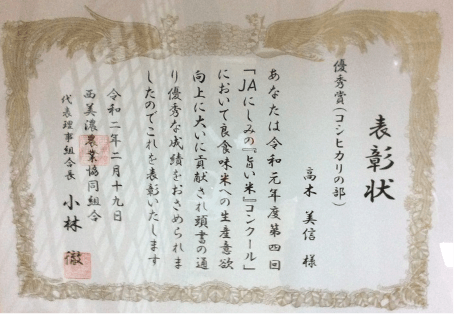 表彰状
優秀賞(コシヒカリの部)
高木 美信 様
あなたは令和元年度第四回
「JAにしみの『旨い米』コンクール」
において良食味米への生産意欲
向上に大いに貢献され頭書の通
り優秀な成績をおさめられま
したのでこれを表彰いたします
令和二年二月十九日
西美濃農業協同組合
代表理事組合長 小林 徹